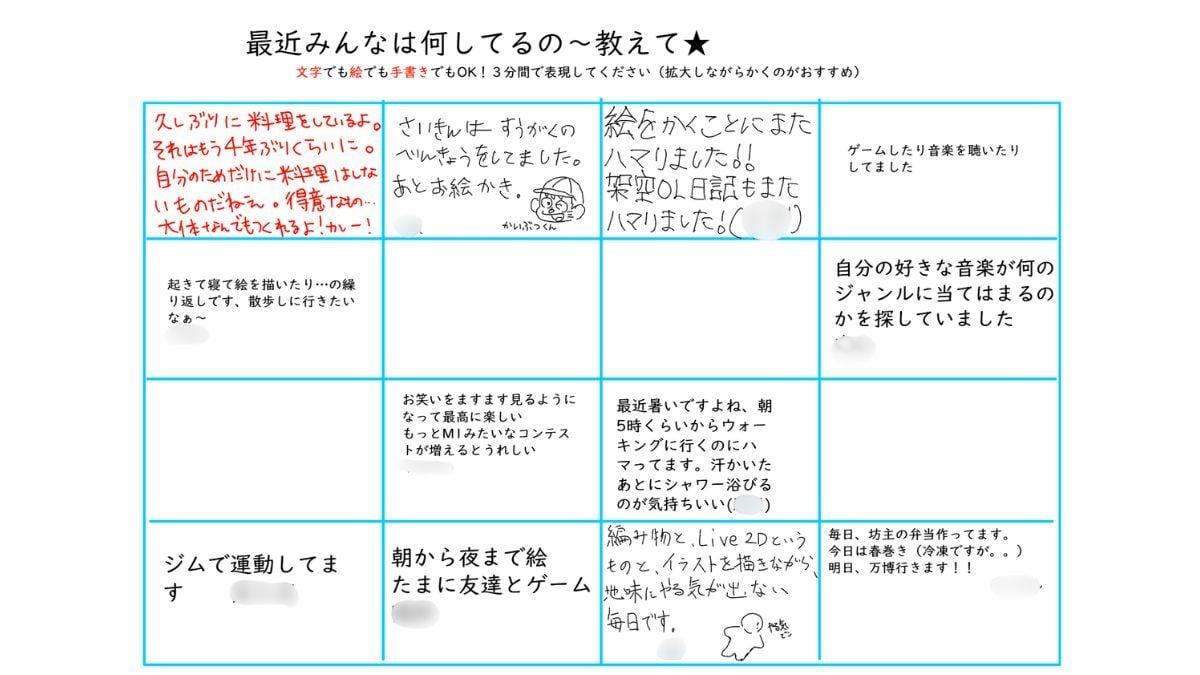 最近みんなは何してるの～教えて★
文字でも絵でも手書きでもOK！３分間で表現してください（拡大しながらかくのがおすすめ）
久しぶりに料理をしているよ。
それはもう4年ぶりくらいに。
自分のためだけに料理はしな
いものだねえ。得意なもの…
大体なんでもつくれるよ！カレー！
さいきんは すうがくの
べんきょうをしてました。
あとお絵かき。
かいぶつくん
絵をかくことにまた
ハマりました!!
架空OL日記もまた
ハマりました!( )
ゲームしたり音楽を聴いたり
してました
起きて寝て絵を描いたり…の繰
り返しです、散歩しに行きたい
なぁ～
自分の好きな音楽が何の
ジャンルに当てはまるの
かを探していました
お笑いをますます見るように
なって最高に楽しい
もっとM1みたいなコンテス
トが増えるとうれしい
最近暑いですよね、朝
5時くらいからウォー
キングに行くのにハ
マってます。汗かいた
あとにシャワー浴びる
のが気持ちいい( )
ジムで運動してま
す
朝から夜まで絵
たまに友達とゲーム
編み物と、Live 2Dという
ものと、イラストを描きながら、
地味にやる気が出ない
毎日です。
毎日、坊主の弁当作ってます。
今日は春巻き（冷凍ですが。。）
明日、万博行きます！！